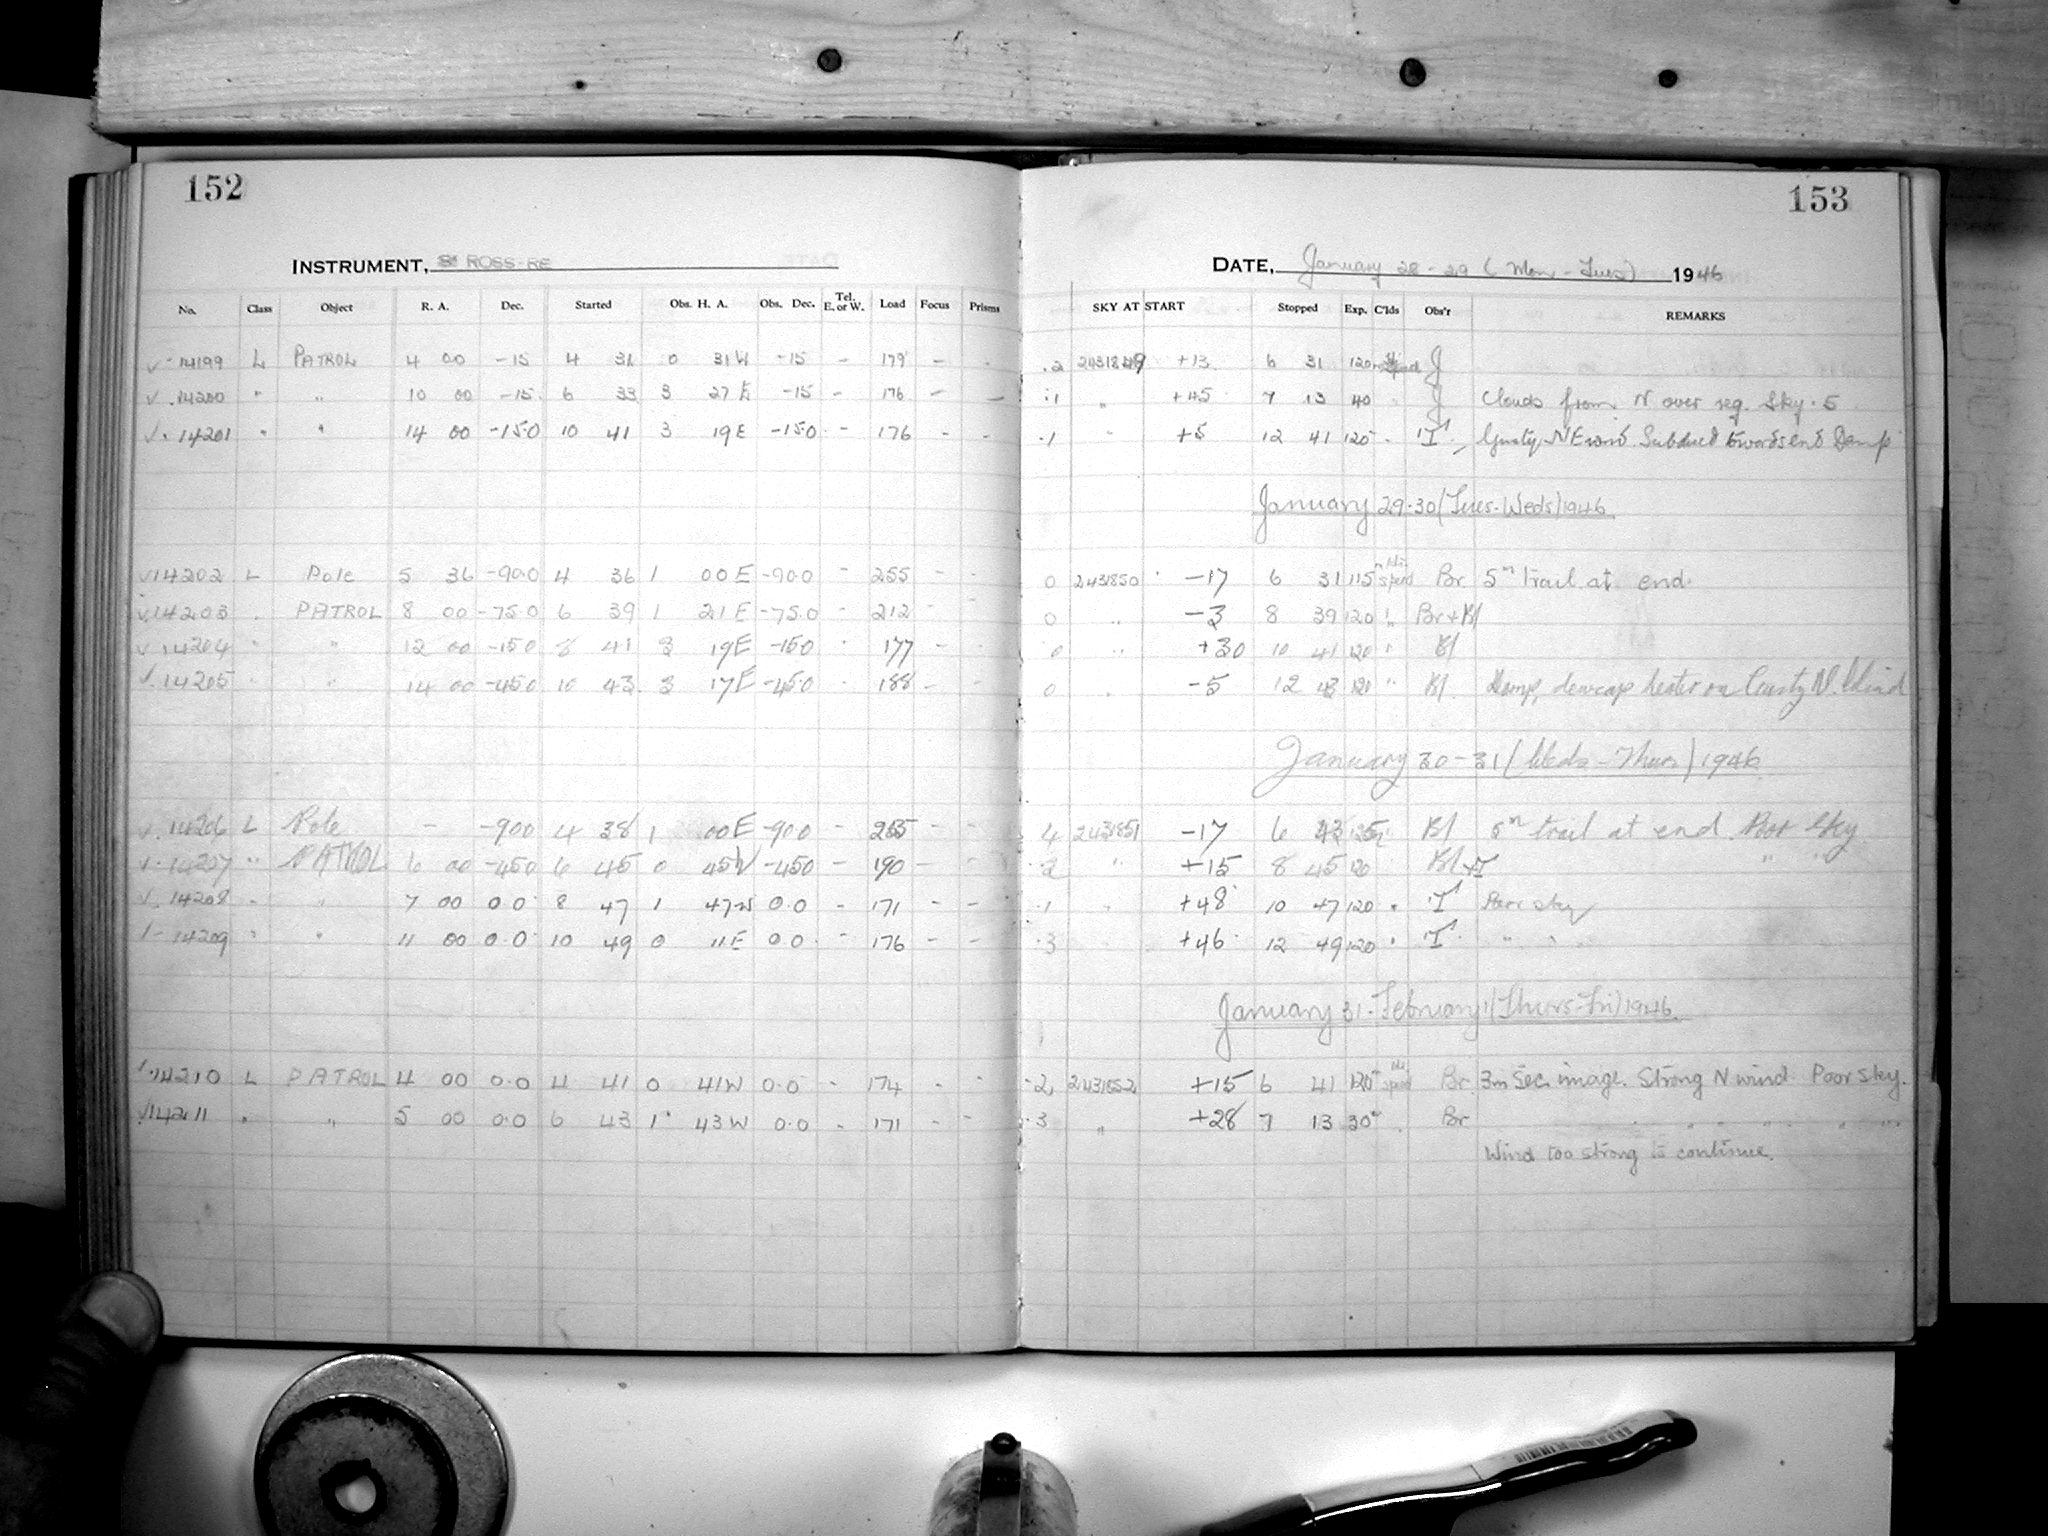 152
153
INSTRUMENT, ROSS-RE
DATE, January 28-29 (Mon-Tues) 1946
No. Class Object R. A. Dec. Started Obs. H. A. Obs. Dec. Tel. E. or W. Load Focus Prisms SKY AT START Stopped Exp. C'lds Obs'r REMARKS
✓ 14199 L PATROL 4 00 -15 4 31 0 31W -15 - 179 - - .2 2431849 +13 6 31 120 J
✓ 14200 " " 10 00 -15 6 33 3 27 E -15 - 176 - - .1 " +45 7 13 40 " J Clouds from N over reg. Sky .5
✓ 14201 " " 14 00 -15.0 10 41 3 19E -15.0 - 176 - - .1 " +5 12 41 120 " I Gusty NE wind. Subdued towards end Damp
January 29-30 (Tues-Weds) 1946
✓ 14202 L Pole 5 36 -90.0 4 36 1 00E -90.0 - 255 - - 0 2431850 -17 6 31 115 spend Br 5m trail at end.
✓ 14203 . PATROL 8 00 -75.0 6 39 1 21E -75.0 - 212 - - 0 " -3 8 39 120 " Br+Bl
✓ 14204 " " 12 00 -15.0 8 41 3 19E -15.0 - 177 - - 0 " +30 10 41 120 " Bl
✓ 14205 " " 14 00 -45.0 10 43 3 17E -45.0 - 188 - - 0 " -5 12 43 120 " Bl. Damp, dewcap heater on Gusty N. Wind
January 30-31 (Weds-Thurs) 1946
✓ 14206 L Pole - -90.0 4 38 1 00E -90.0 - 255 - - 4 2431851 -17 6 43 125 Bl 5m trail at end. Poor Sky.
✓ 14207 " PATROL 6 00 -45.0 6 45 0 45W -45.0 - 190 - - .2 " +15 8 45 120 Bl+I " "
✓ 14208 " " 7 00 0.0 8 47 1 47W 0.0 - 171 - - .1 " +48 10 47 120 " I Poor sky
✓ 14209 " " 11 00 0.0 10 49 0 11E 0.0 - 176 - - .3 +46 12 49 120 " I " "
January 31-February 1 (Thurs-Fri) 1946
✓ 14210 L PATROL 4 00 0.0 4 41 0 41W 0.0 - 174 - - .2 2431852 +15 6 41 120 Br 3m Sec. image. Strong N wind. Poor Sky.
✓ 14211 " " 5 00 0.0 6 43 1 43W 0.0 - 171 - - .3 " +28 7 13 30 . Br " " " " " "
Wind too strong to continue.